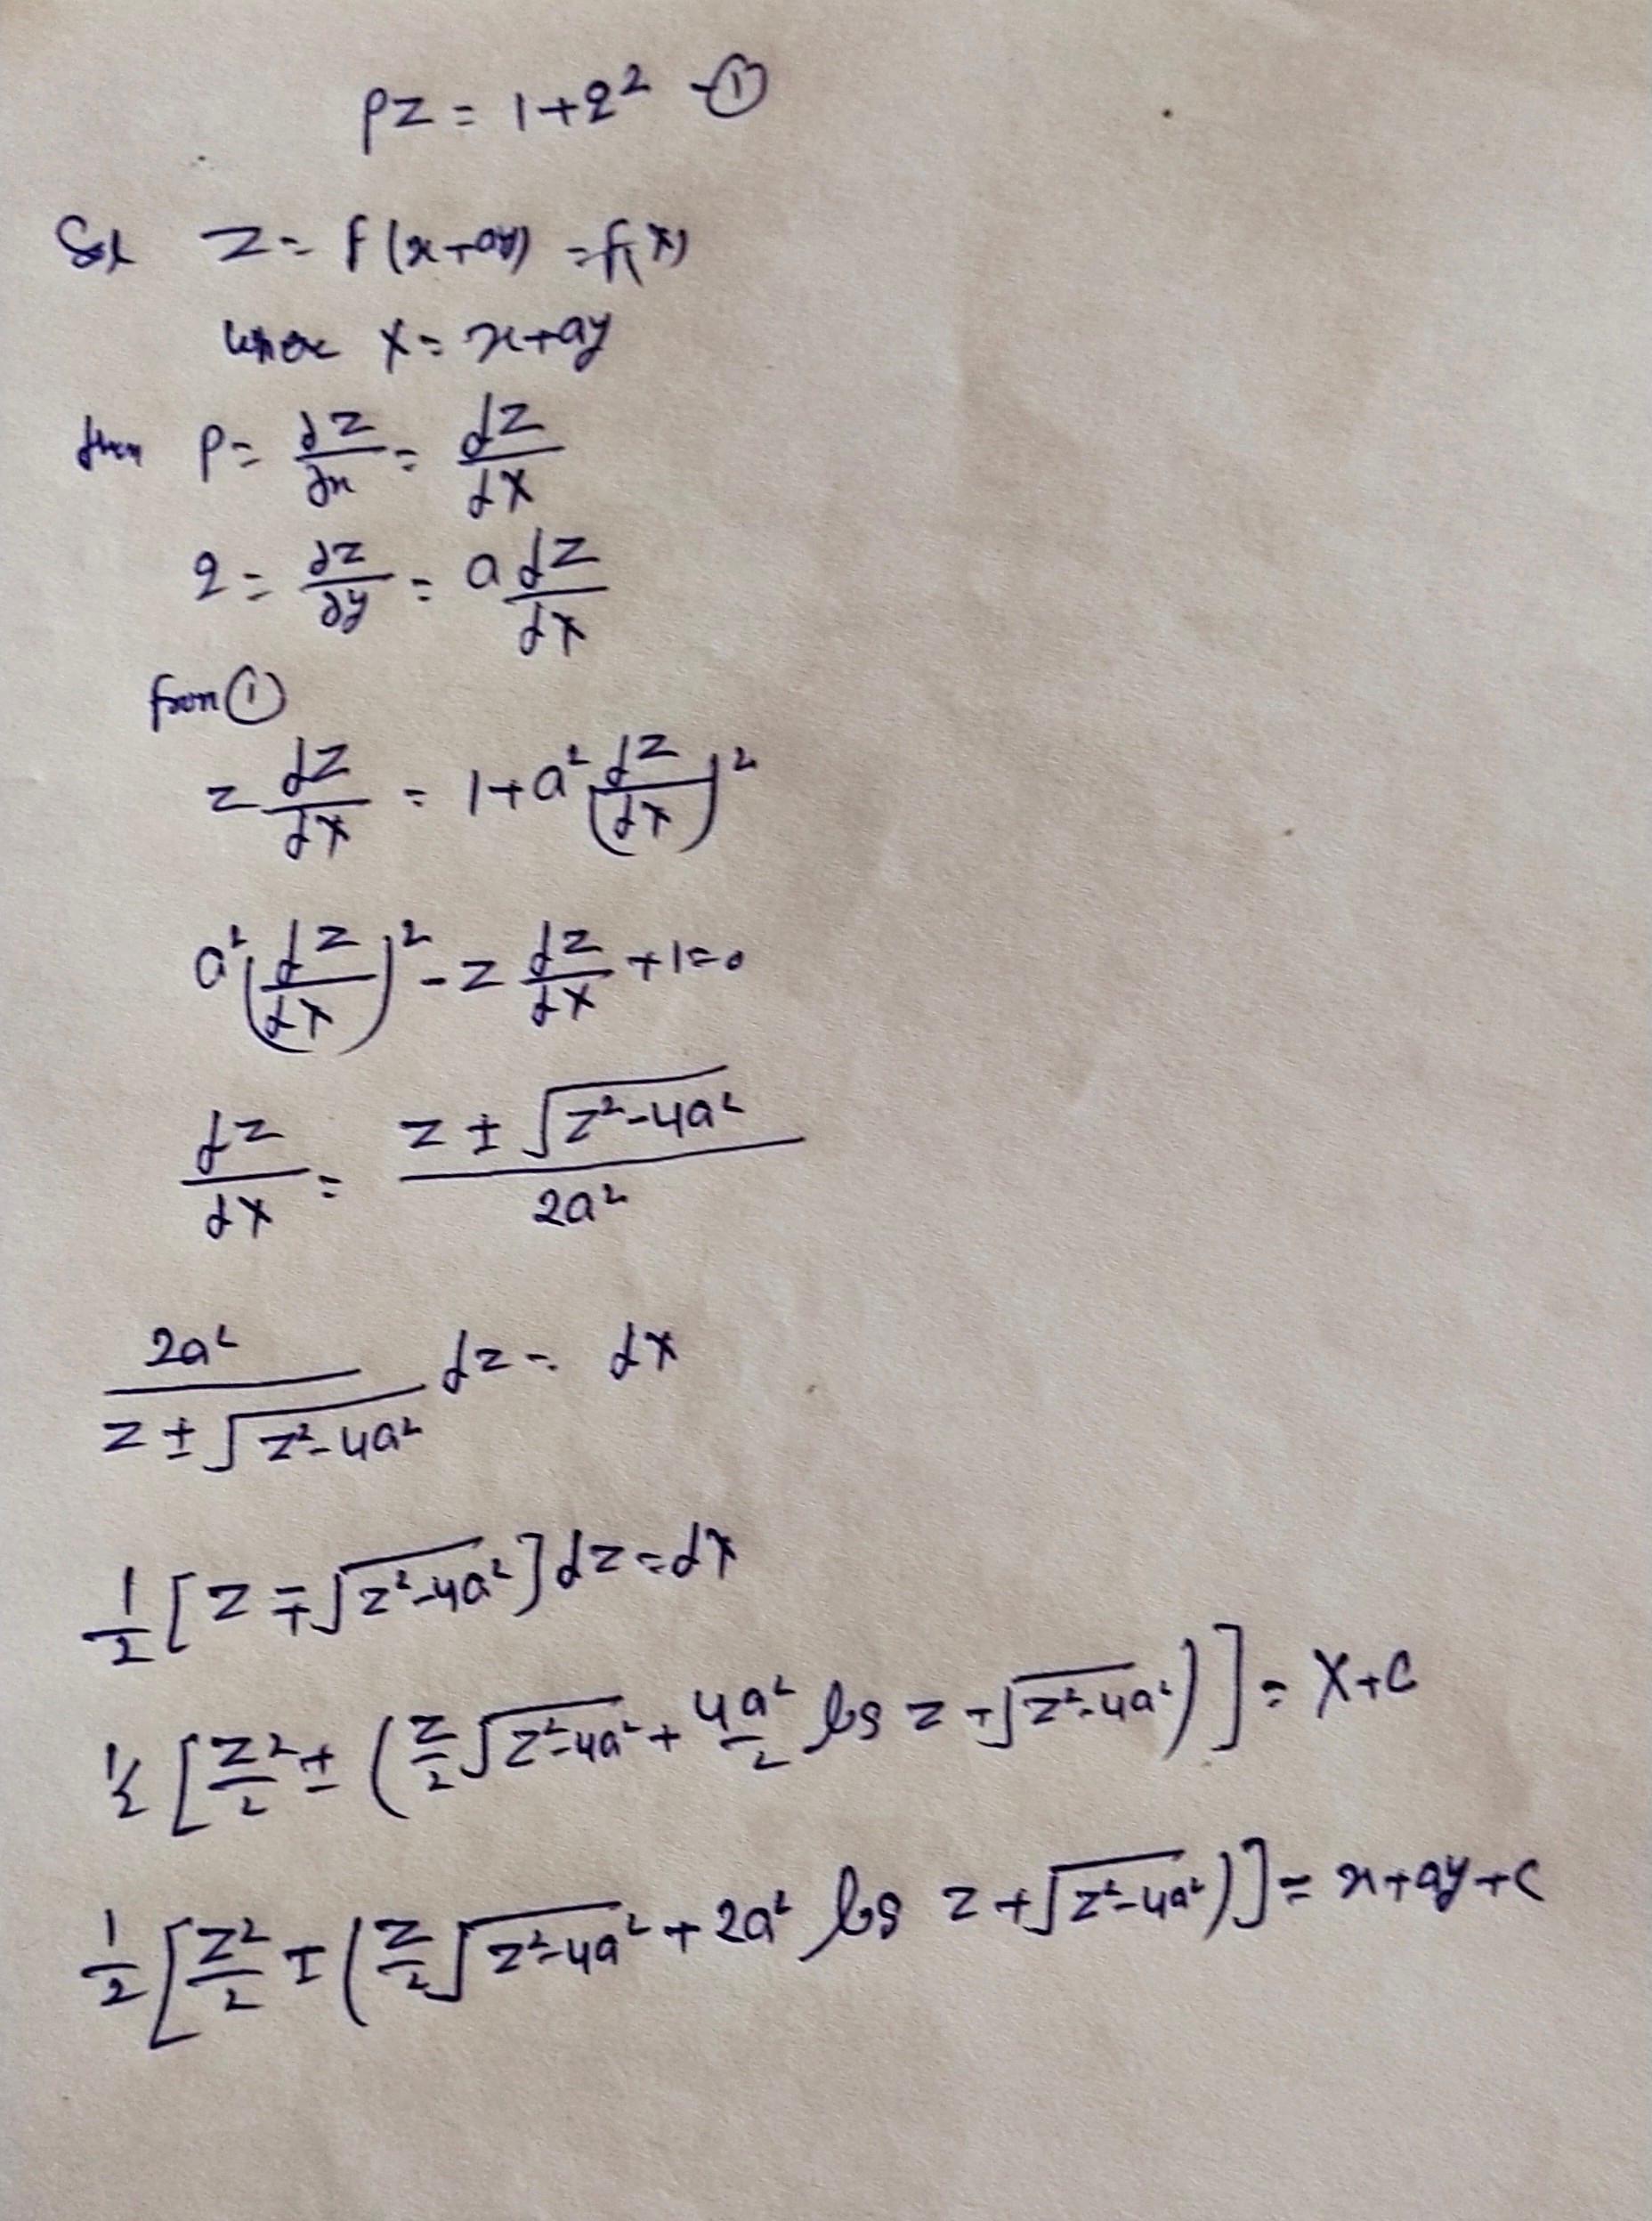 pz = 1+q² -①
Sol z = f(x+ay) = f(X)
where X = x+ay
then p = ∂z/∂x = dz/dX
q = ∂z/∂y = a dz/dX
from ①
z dz/dX = 1+a² (dz/dX)²
a² (dz/dX)² - z dz/dX + 1 = 0
dz/dX = (z ± √(z²-4a²))/2a²
2a²/(z ± √(z²-4a²)) dz = dX
1/2 [z ∓ √(z²-4a²)] dz = dX
1/2 [z²/2 ± (z/2 √(z²-4a²) + 4a²/2 log z + √(z²-4a²))] = X+C
1/2 [z²/2 ± (z/2 √(z²-4a²) + 2a² log z + √(z²-4a²))] = x+ay+c